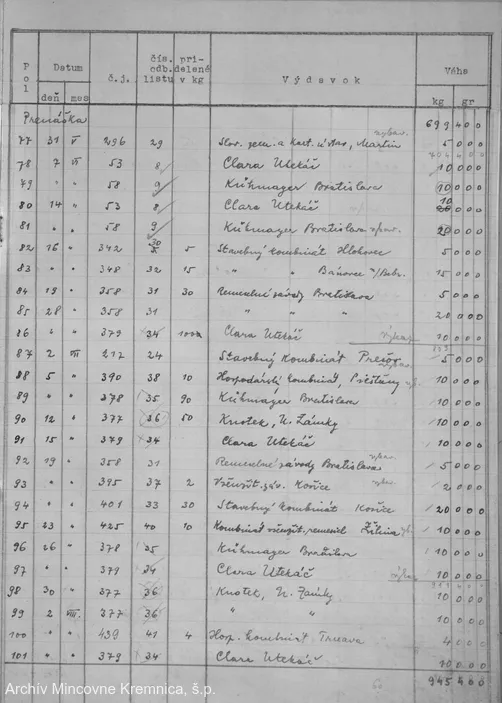 Pol Datum č.j. čís. odb. listu pri- delené v kg Výdavok Váha
deň mes kg gr
Prenáška 699 400
77 31 V 296 29 Slov. zem. a kart. ústav, Martin 5 000
78 7 VI 53 8 Clara Utekáč 10 000
79 " " 58 9 Kühmayer Bratislava 10 000
80 14 " 53 8 Clara Utekáč 10 000
81 " " 58 9 Kühmayer Bratislava 20 000
82 16 " 342 30 5 Stavebný kombinát Hlohovec 5 000
83 " " 348 32 15 " " Bánovce n/Bebr. 15 000
84 19 " 358 31 30 Remeselné závody Bratislava 5 000
85 28 " 358 31 " " " 20 000
86 " " 379 34 Clara Utekáč 10 000
87 2 VII 217 24 Stavebný Kombinát Prešov 5 000
88 5 " 390 38 10 Hospodársky Kombinát, Piešťany 10 000
89 " " 378 35 90 Kühmayer Bratislava 10 000
90 12 " 377 36 50 Knotek, N. Zámky 10 000
91 15 " 379 34 Clara Utekáč 10 000
92 19 " 358 31 Remeselné závody Bratislava 5 000
93 " " 395 37 2 Košice 2 000
94 " " 401 33 30 Stavebný Kombinát Košice 20 000
95 23 " 425 40 10 Kombinát remesiel Žilina 10 000
96 26 " 378 35 Kühmayer Bratislava 10 000
97 " " 379 34 Clara Utekáč 10 000
98 30 " 377 36 Knotek, N. Zámky 10 000
99 2 VIII. 377 36 " " 10 000
100 " " 439 41 4 Hosp. Kombinát Trnava 4 000
101 " " 379 34 Clara Utekáč 10 000
945 400
Archív Mincovne Kremnica, š.p.